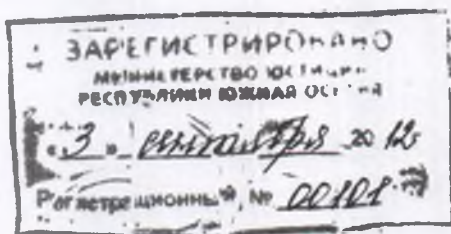 ЗАРЕГИСТРИРОВАНО
МИНИСТЕРСТВО ЮСТИЦИИ
РЕСПУБЛИКИ ЮЖНАЯ ОСЕТИЯ
«3» сентября 2012г
Регистрационный № 00101